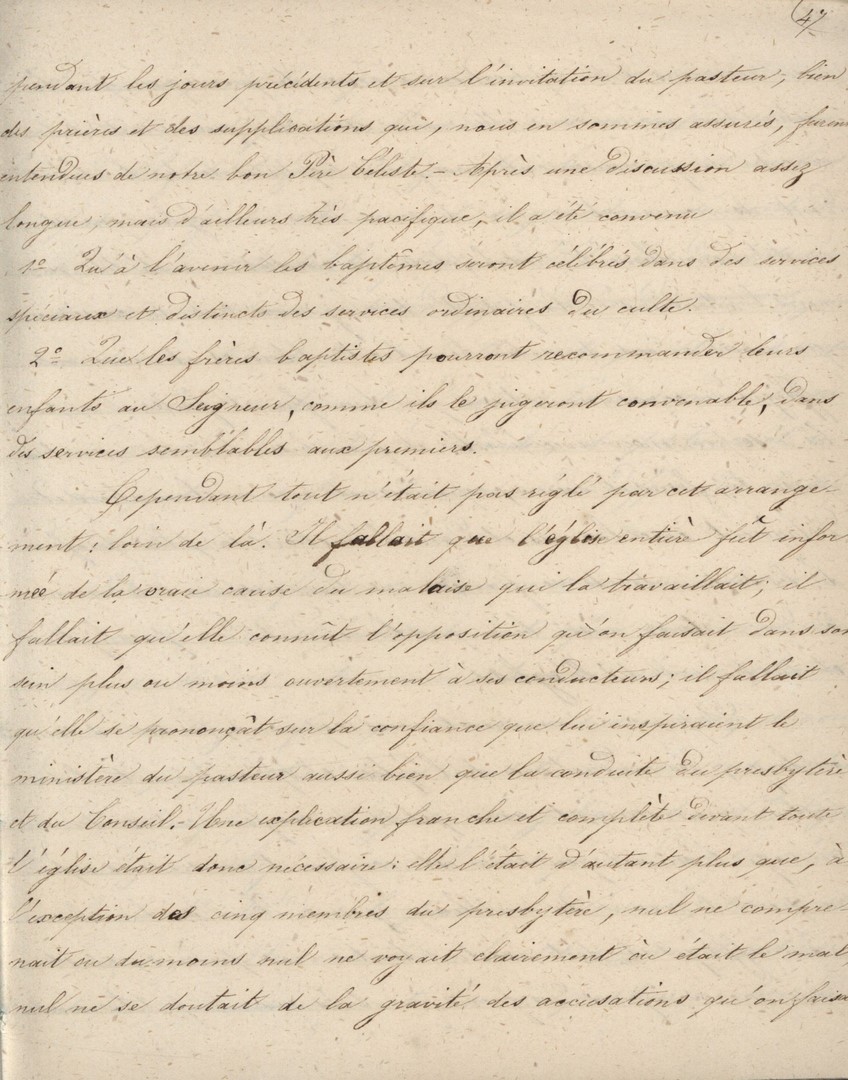 47
pendant les jours précédents et sur l'invitation du pasteur, bien
des prières et des supplications qui, nous en sommes assurés, furent
entendues de notre bon Père Céleste. - Après une discussion assez
longue, mais d'ailleurs très pacifique, il a été convenu
1o Qu'à l'avenir les baptêmes seront célébrés dans des services
spéciaux et distincts des services ordinaires du culte.
2o Que les frères baptistes pourront recommander leurs
enfants au Seigneur, comme ils le jugeront convenable, dans
des services semblables aux premiers.
Cependant tout n'était pas réglé par cet arrange-
ment: loin de là. Il fallait que l'église entière fût infor
mée de la vraie cause du malaise qui la travaillait; il
fallait qu'elle connût l'opposition qu'on faisait dans son
sein plus ou moins ouvertement à ses conducteurs; il fallait
qu'elle se prononçât sur la confiance que lui inspiraient le
ministère du pasteur aussi bien que la conduite du presbytère
et du Conseil. - Une explication franche et complète devant toute
l'église était donc nécessaire: elle l'était d'autant plus que, à
l'exception des cinq membres du presbytère, nul ne compre-
nait ou du moins nul ne voyait clairement où était le mal,
nul ne se doutait de la gravité des accusations qu'on faisa